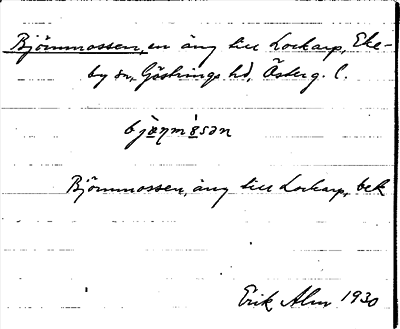 Björnmossen, en äng till Lockarp, Eke-
by sn, Göstrings hd, Österg. l.
Björnmossen, äng till Lockarp, bek
Erik Alm 1930